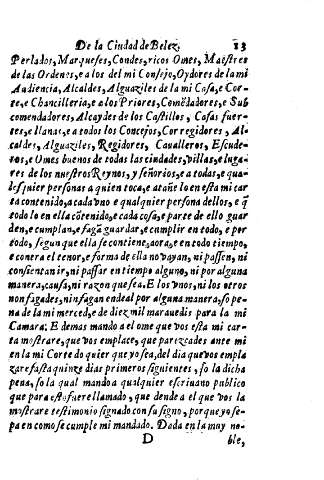 De la Ciudad de Belez. 13
Perlados, Marqueſes, Condes, ricos Omes, Maeſtres
de las Ordenes, e a los del mi Conſejo, Oydores de la mi
Audiencia, Alcaldes, Alguaziles de la mi Caſa, e Cor-
te, e Chancilleria, e a los Priores, Comẽdadores, e Sub
comendadores, Alcaydes de los Caſtillos, Caſas fuer-
tes, e llanas, e a todos los Concejos, Corregidores, Al-
caldes, Alguaziles, Regidores, Cavalleros, Eſcude-
ros, e Omes buenos de todas las ciudades, villas, e luga-
res de los nueſtros Reynos, y ſeñorios, e a todas, e qua-
leſquier perſonas a quien toca, e atañe lo en eſta mi car
ta contenido, a cada uno e qualquier perſona dellos, e q̃
todo lo en ella cõtenido, e cada coſa, e parte de ello guar
den, e cumplan, e fagã guardar, e cumplir en todo, e por
todo, ſegun que ella ſe contiene, aora, e en todo tiempo,
e contra el tenor, e forma de ella no vayan, ni paſſen, ni
conſientan ir, ni paſſar en tiempo alguno, ni por alguna
manera, cauſa, ni razon que ſea. E los vnos, ni los otros
non fagades, nin fagan endeal por alguna manera, ſo pe-
na de la mi merced, e de diez mil marauedis para la mi
Camara; E demas mando al ome que vos eſta mi car-
ta moſtrare, que vos emplace, que parezcades ante mi
en la mi Corte do quier que yo ſea, del dia que vos empla
zare faſta quinze dias primeros ſiguientes, ſo la dicha
pena, ſo la qual mando a qualquier eſcriuano publico
que para eſto fuere llamado, que dende a el que vos la
moſtrare teſtimonio ſignado con ſu ſigno, porque yo ſe-
pa en como ſe cumple mi mandado. Dada en la muy no-
D ble,